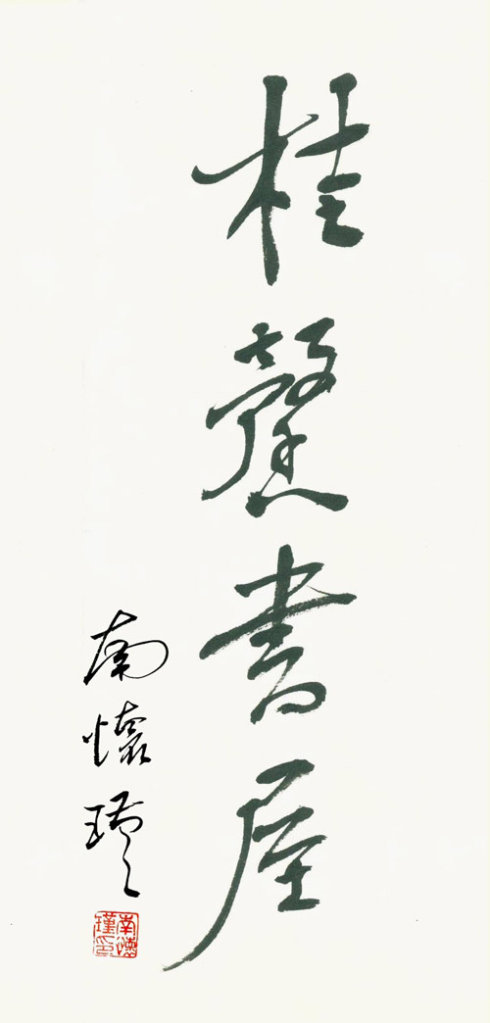 桂馨書屋
南懷瑾
南懷
瑾印